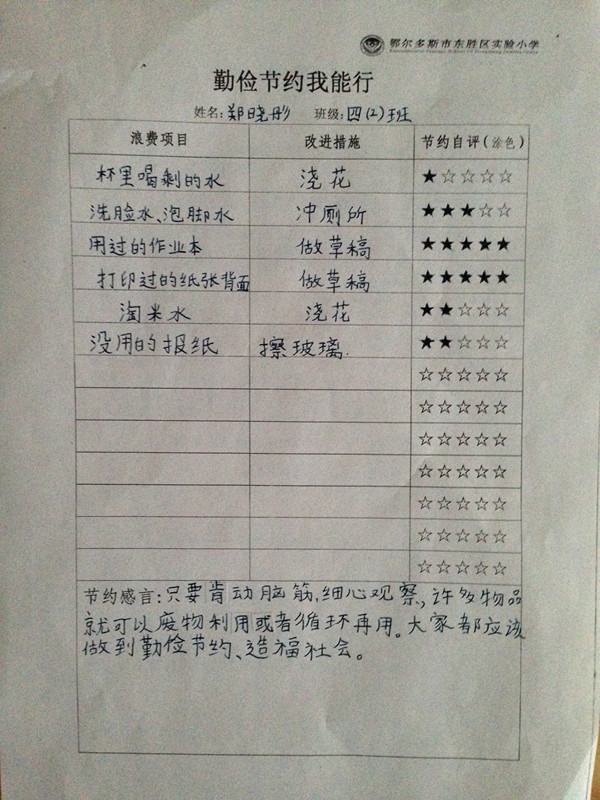 鄂尔多斯市东胜区实验小学
勤俭节约我能行
姓名:郑晓彤 班级:四(2)班
浪费项目 改进措施 节约自评(涂色)
杯里喝剩的水 浇花 ★☆☆☆☆
洗脸水、泡脚水 冲厕所 ★★★☆☆
用过的作业本 做草稿 ★★★★★
打印过的纸张背面 做草稿 ★★★★★
淘米水 浇花 ★★☆☆☆
没用的报纸 擦玻璃. ★★☆☆☆
☆☆☆☆☆
☆☆☆☆☆
☆☆☆☆☆
☆☆☆☆☆
☆☆☆☆☆
☆☆☆☆☆
☆☆☆☆☆
节约感言:只要肯动脑筋,细心观察,许多物品
就可以废物利用或者循环再用。大家都应该
做到勤俭节约、造福社会。